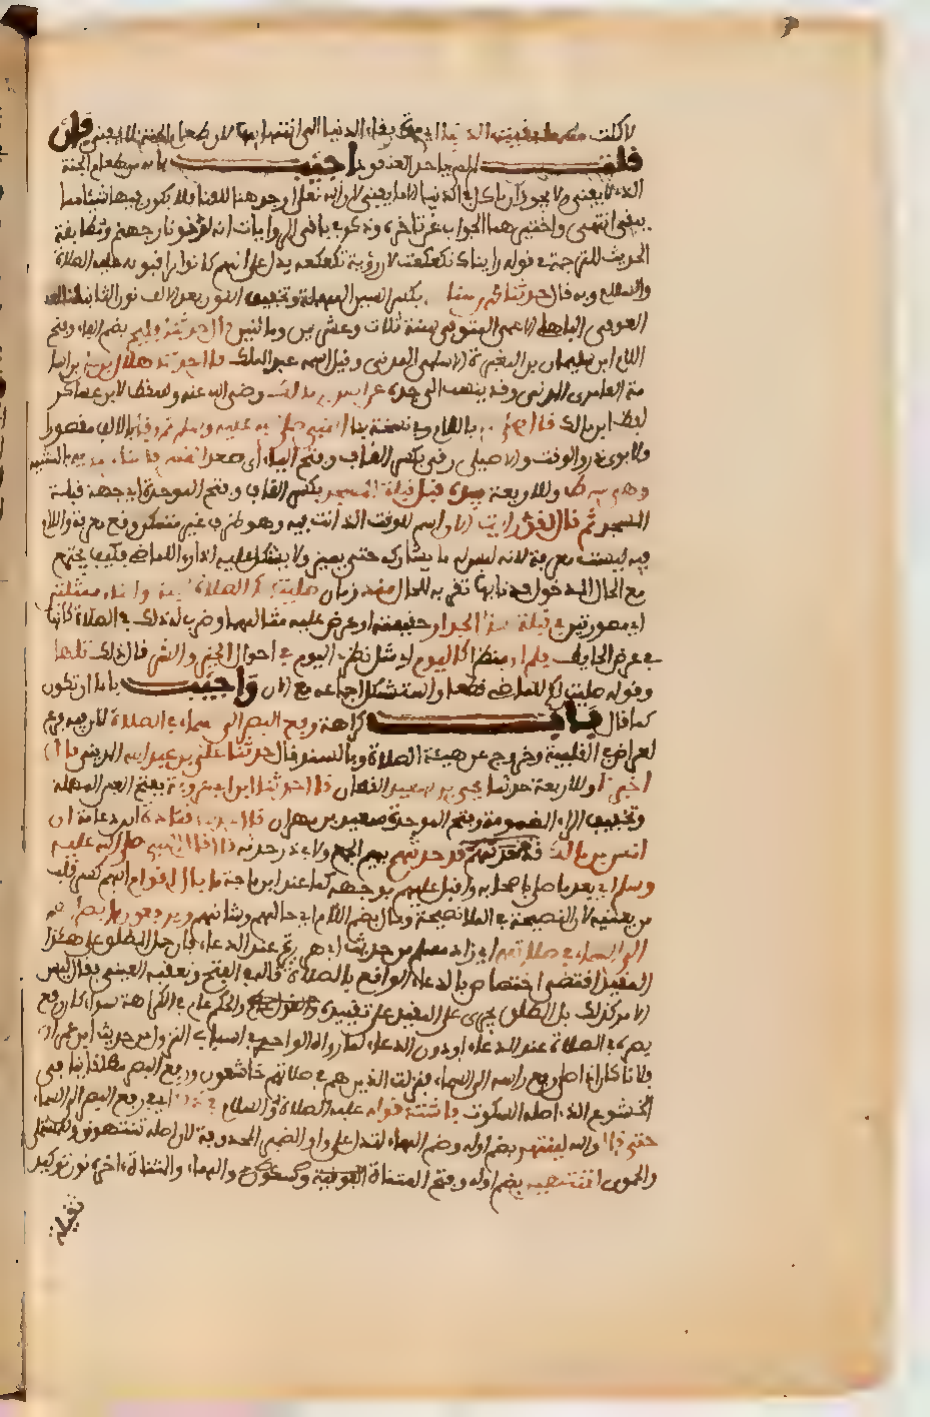 لاكلت منه ما بقيت الدنيا اي مدة بقاء الدنيا الى انتهائها لان طعام الجنة لا يفنى فان
قلت لم لم ياخذ العنقود اجيب بانه من طعام الجنة
الذي لا يفنى ولا يجوز ان ياكل في الدنيا الا ما يفنى لان الله تعالى اوجدها للفنا فلا يكون فيها شيء مما
يبقى انتهى واختصر هذا الجواب غير تاخره وذكر في باقي الروايات انه لفرض نار جهنم ومطابقة
الحديث للترجمة في قوله رايناك تكعكعت لان رؤية تكعكعه يدل على انهم كانوا يراقبونه عليه الصلاة
والسلام وبه قال حدثنا محمد بن سنان بكسر السين المهملة وتخفيف النون بعد الالف نون الثانية
العوفي الباهلي الاعمى المتوفى سنة ثلاث وعشرين ومائتين قال حدثنا فليح بضم الفاء وفتح
اللام ابن سليمان بن المغيرة الاسلمي المدني وقيل اسمه عبد الملك قال حدثنا هلال بن علي
العامري المدني وقد ينسب الى جده عن انس بن مالك رضي الله عنه وسقط لابن عساكر
لفظ ابن مالك قال صلى باللام وفي نسخة بنا النبي صلى الله عليه وسلم ثم رقا بالالف مقصورا
ولابوي ذر والوقت والاصيلي رقي بكسر القاف وفتح الياء اي صعد المنبر فاشار بيديه بالتثنية
وللاربعة بيده قبل قبلة المسجد بكسر القاف وفتح الموحدة اي جهة قبلة
المسجد ثم قال لقد رايت الان اسم للوقت الذي انت فيه وهو ظرف غير متمكن وقع معرفة واللام
فيه ليست معرفة لانه ليس له ما يشاركه حتى يميز ولا يشكل عليه ان راى للماضي فكيف يجتمع
مع الحال لدخول قد فانها تقربه للحال منذ زمان صليت لكم الصلاة الجنة والنار ممثلتين
اي مصورتين في قبلة هذا الجدار حقيقة او عرض عليه مثالهما وضرب له ذلك في الصلاة كانهما
في عرض الحايط فلم ار منظرا كاليوم اي مثل نظر اليوم في احوال الخير والشر قال ذلك ثلاثا
وقوله صليت لكم للماضي قطعا واستشكل اجتماعه مع الان واجيب بانه اما ان تكون
كما قال باب كراهة رفع البصر الى السماء في الصلاة لان فيه نوع
اعراض عن القبلة وخروج عن هيئة الصلاة وبالسند قال حدثنا علي بن عبد الله المديني قال
اخبرنا وللاربعة حدثنا يحيى بن سعيد القطان قال حدثنا ابن ابي عروبة بفتح العين المهملة
وتخفيف الراء المضمومة وفتح الموحدة سعيد بن مهران قال حدثنا قتادة ابن دعامة ان
انس بن مالك حدثهم بميم الجمع ولابي ذر حدثه قال قال النبي صلى الله عليه
وسلم اي بعد ما صلى باصحابه واقبل عليهم بوجهه كما عند ابن ماجة ما بال اقوام ابهم كسر قلب
من يعنيه لان النصيحة في الملا فضيحة وبال بضم اللام اي حالهم وشانهم يرفعون ابصارهم
الى السماء في صلاتهم زاد مسلم من حديث ابي هريرة عند الدعاء فان حمل المطلق على هذا
المقيد اقتضى اختصاص بالدعاء الواقع بالصلاة قاله في الفتح وتعقبه العيني فقال ليس
الامر كذلك بل المطلق يجرى على اطلاقه والمقيد على تقييده والحكم عام في الكراهة سواء كان رفع
بصره في الصلاة عند الدعاء او بدون الدعاء لما رواه الواحدي في اسباب النزول من حديث ابي هريرة ان
فلانا كان اذا صلى رفع راسه الى السماء فنزلت الذين هم في صلاتهم خاشعون ورفع البصر مطلقا ينافي
الخشوع الذي اصله السكون فاشتد قوله عليه الصلاة والسلام في ذلك اي في رفع البصر الى السماء
حتى قال والله لينتهن بضم اوله وضم الهاء لتدل على واو الضمير المحذوفة لان اصله لينتهون وللمستملي
والحموي لينتهين بضم اوله وفتح المثناة الفوقية والهاء والمثناة اخره نون توكيد
ثقيلة